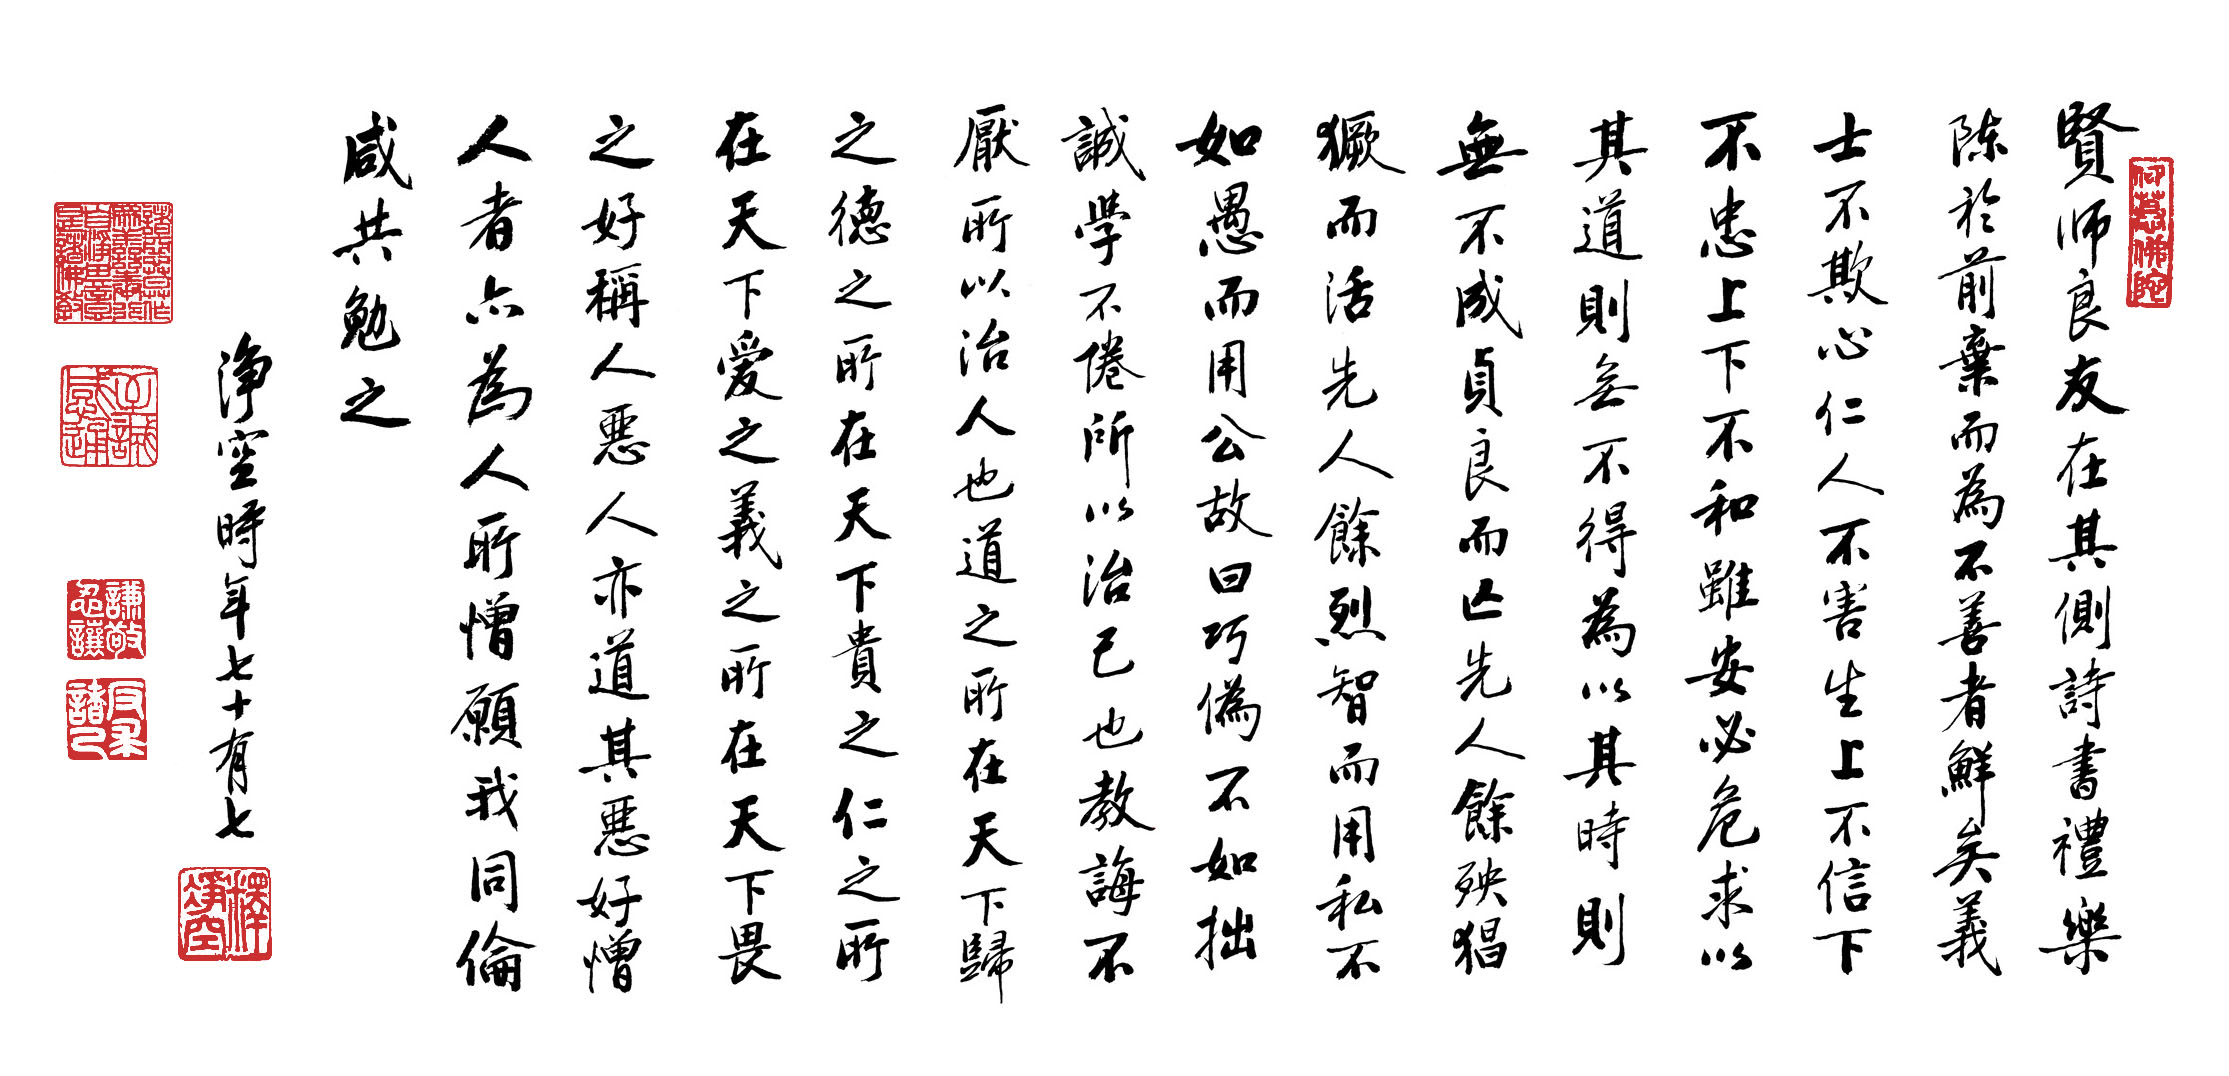 仰慈佛陀
賢師良友在其側詩書禮樂
陳於前棄而為不善者鮮矣義
士不欺心仁人不害生上不信下
不忠上下不和雖安必危求以
其道則無不得為以其時則
無不成貞良而亡先人餘殃猖
獗而活先人餘烈智而用私不
如愚而用公故曰巧偽不如拙
誠學不倦所以治己也教誨不
厭所以治人也道之所在天下歸
之德之所在天下貴之仁之所
在天下愛之義之所在天下畏
之好稱人惡人亦道其惡好憎
人者亦為人所憎願我同倫
咸共勉之
淨空時年七十有七
釋淨空
諸惡莫作
眾善奉行
自淨其意
是諸佛教
至誠感通
謙敬忍讓